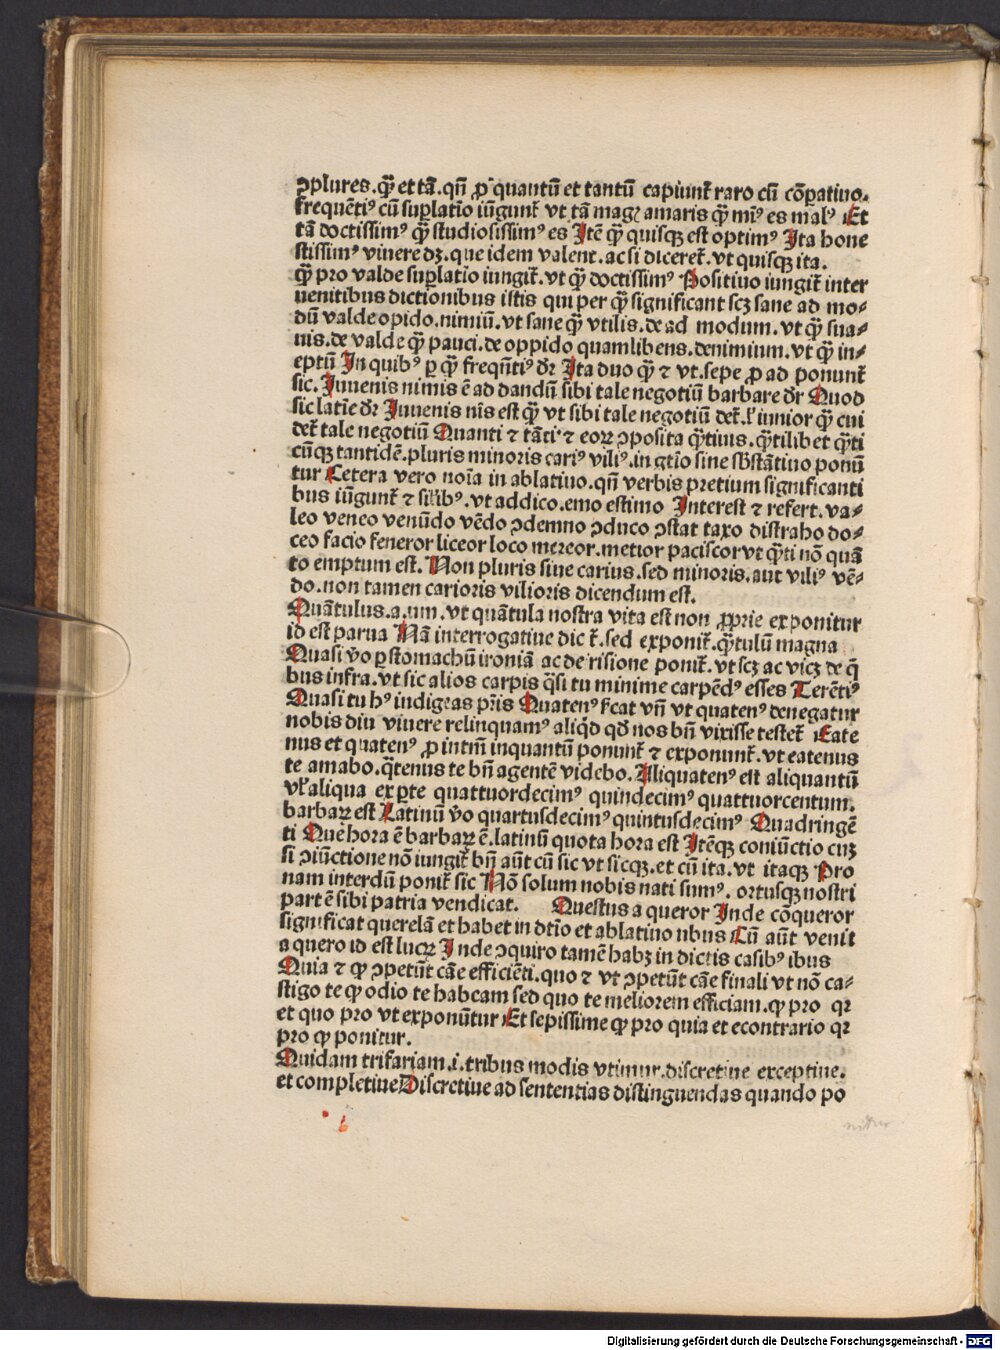 ɔplures.q̄ et tā.qn̄ ꝓ quantū et tantū capiunt̄ raro cū cōꝑatiuo.
frequēti⁹ cū suꝑlatio iūgunt̄ vt tā magꝭ amaris q̄ mi⁹ es mal⁹ Et
tā doctissim⁹ q̄ studiosissim⁹ es Itē q̄ quisqꝫ est optim⁹ Ita hone
stissim⁹ viuere dꝫ.que idem valent.ac si diceret̄.vt quisqꝫ ita.
q̄ pro valde suꝑlatio iungit̄.vt q̄ doctissim⁹ Positiuo iungit̄ inter
uenitibus dictionibus istis qui per q̄ significant scꝫ sane ad mo⸗
dū valde opido.nimiū.vt sane q̄ vtilis.de ad modum.vt q̄ sua⸗
uis.de valde q̄ pauci.de oppido quamlibens.denimium.vt q̄ in⸗
eptū In quib⁹ ꝑ q̄ freqn̄ti⁹ dr̄ Ita duo q̄ ⁊ vt.sepe ꝓ ad ponunt̄
sic.Iuuenis nimis ē ad dandū sibi tale negotiū barbare dr̄ Quod
sic latīe dr̄ Iuuenis nīs est q̄ vt sibi tale negotiū det̄.l' iunior q̄ cui
det̄ tale negotiū Quanti ⁊ tāti ⁊ eoꝝ ɔposita q̄tiuis.q̄tilibet q̄ti
cūqꝫ tantidē.pluris minoris cari⁹ vili⁹.in gtīo sine sb̄stātiuo ponū
tur Cetera vero noīa in ablatiuo.qn̄ verbis pretium significanti
bus iūgunt̄ ⁊ silib⁹.vt addico.emo estimo Interest ⁊ refert.va⸗
leo veneo venūdo vēdo ɔdemno ɔduco ɔstat taxo distraho do⸗
ceo facio feneror liceor loco mereor.metior paciscor vt q̄ti nō quā
to emptum est.Non pluris siue carius.sed minoris.aut vili⁹ vē⸗
do.non tamen carioris vilioris dicendum est.
Quātulus.a.um.vt quātula nostra vita est non ꝓprie exponitur
id est parua Nā interrogatiue dic t̄.sed exponit̄.q̄tulū magna
Quasi v̄o ꝑ stomachū ironiā ac derisione ponit̄.vt scꝫ ac vicꝫ de q̄
bus infra.vt sic alios carpis q̄si tu minime carpēd⁹ esses Terēti⁹
Quasi tu h⁹ indigeas pr̄is Quaten⁹ vn̄ vt quaten⁹ denegatur
nobis diu viuere relinquam⁹ aliqd̄ qd̄ nos bn̄ vixisse testet̄ Eate
nus et quaten⁹ ꝓ intm̄ inquantū ponunt̄ ⁊ exponunt̄.vt eatenus
te amabo.q̄tenus te bn̄ agentē videbo.Aliquaten⁹ est aliquantū
vl' aliqua ex ꝑte quattuordecim⁹ quindecim⁹ quattuorcentum.
barbaꝝ est Latinū v̄o quartusdecim⁹ quintusdecim⁹ Quadringē
ti Que hora ē barbaꝝ ē.latinū quota hora est Itēqꝫ coniūctio cuꝫ
si ɔiūctione nō iungit̄ bn̄ aūt cū sic vt sicqꝫ.et cū ita.vt itaqꝫ Pro
nam interdū ponit̄ sic Nō solum nobis nati sum⁹.ortusqꝫ nostri
partē sibi patria vendicat. Questus a queror Inde cōqueror
significat querelā et habet in dtīo et ablatiuo ubus Cū aūt venit
a quero id est lucꝝ Inde ɔquiro tamē habꝫ in dictis casib⁹ ibus
Quia ⁊ ꝙ ɔpetūt cāe efficiēti.quo ⁊ vt ɔpetūt cāe finali vt nō ca⸗
stigo te ꝙ odio te habeam sed quo te meliorem efficiam.ꝙ pro qꝛ
et quo pro vt exponūtur Et sepissime ꝙ pro quia et econtrario qꝛ
pro ꝙ ponitur.
Quidam trifariam.i.tribus modis vtimur.discretiue exceptiue.
et completiue Discretiue ad sententias distinguendas quando po
Digitalisierung gefördert durch die Deutsche Forschungsgemeinschaft - DFG